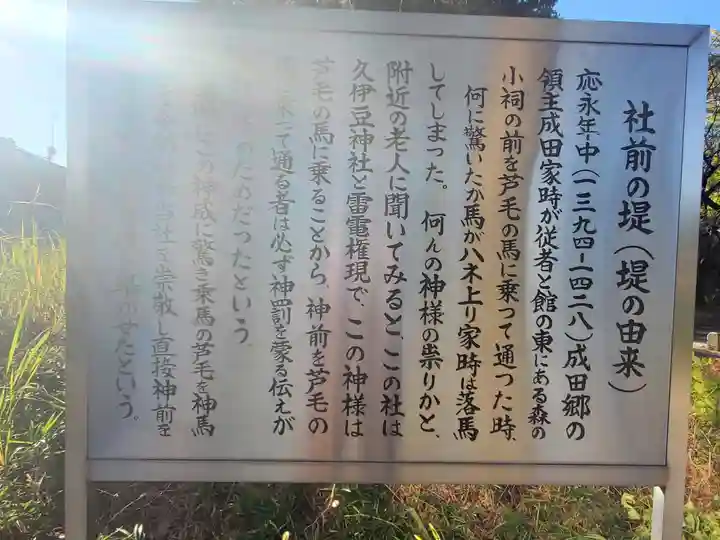 社前の堤(堤の由来)
応永年中(一三九四ー一四二八)成田郷の
領主成田家時が従者と館の東にある森の
小祠の前を芦毛の馬に乗って通った時、
何に驚いたか馬がハネ上り家時は落馬
してしまった。何んの神様の祟りかと、
附近の老人に聞いてみると、この社は
久伊豆神社と雷電権現で、この神様は
芦毛の馬に乗ることから、神前を芦毛の
て通る者は必ず神罰を蒙る伝えが
のためだったという。
この神威に驚き乗馬の芦毛を神馬
当社を崇敬し直接神前を
せたという。